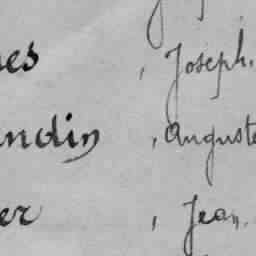 es, Joseph.
ndin, Auguste
er, Jean.